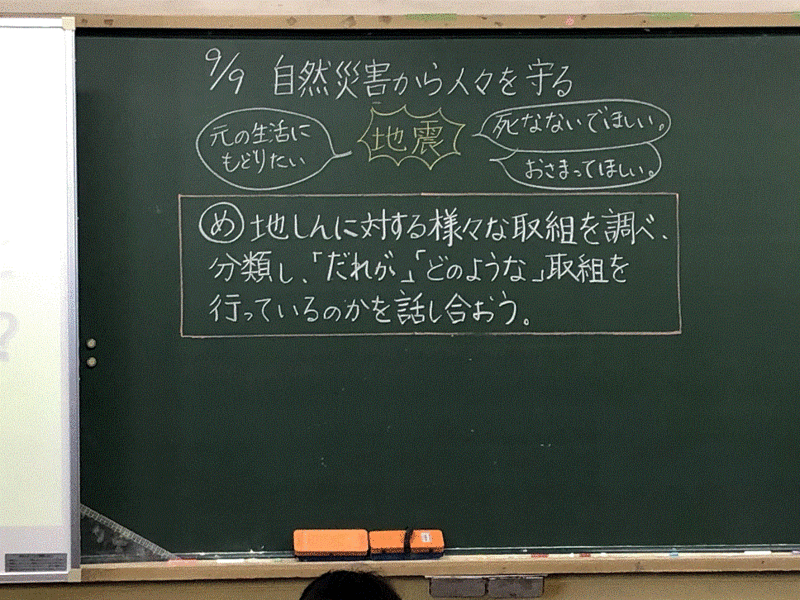 9/9 自然災害から人々を守る
元の生活に
もどりたい
地震
死なないでほしい。
おさまってほしい。
め 地しんに対する様々な取組を調べ、
分類し、「だれが」「どのような」取組を
行っているのかを話し合おう。